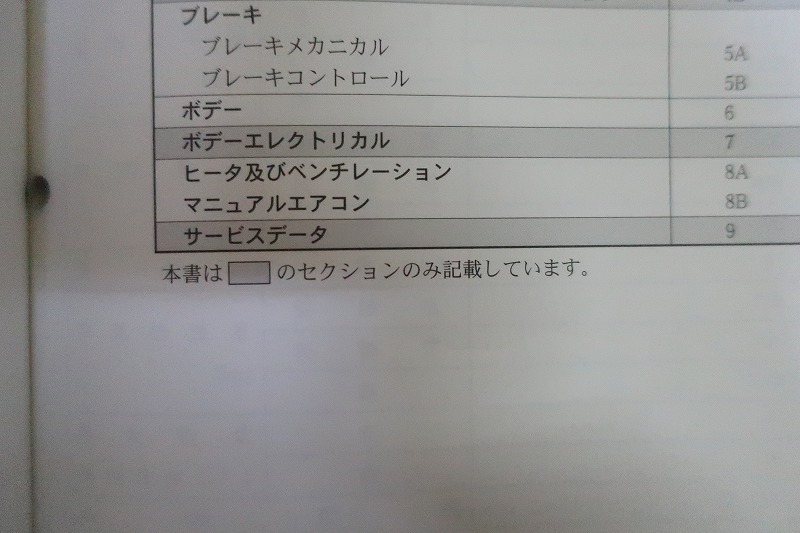 ブレーキ
ブレーキメカニカル 5A
ブレーキコントロール 5B
ボデー 6
ボデーエレクトリカル 7
ヒータ及びベンチレーション 8A
マニュアルエアコン 8B
サービスデータ 9
本書は のセクションのみ記載しています。